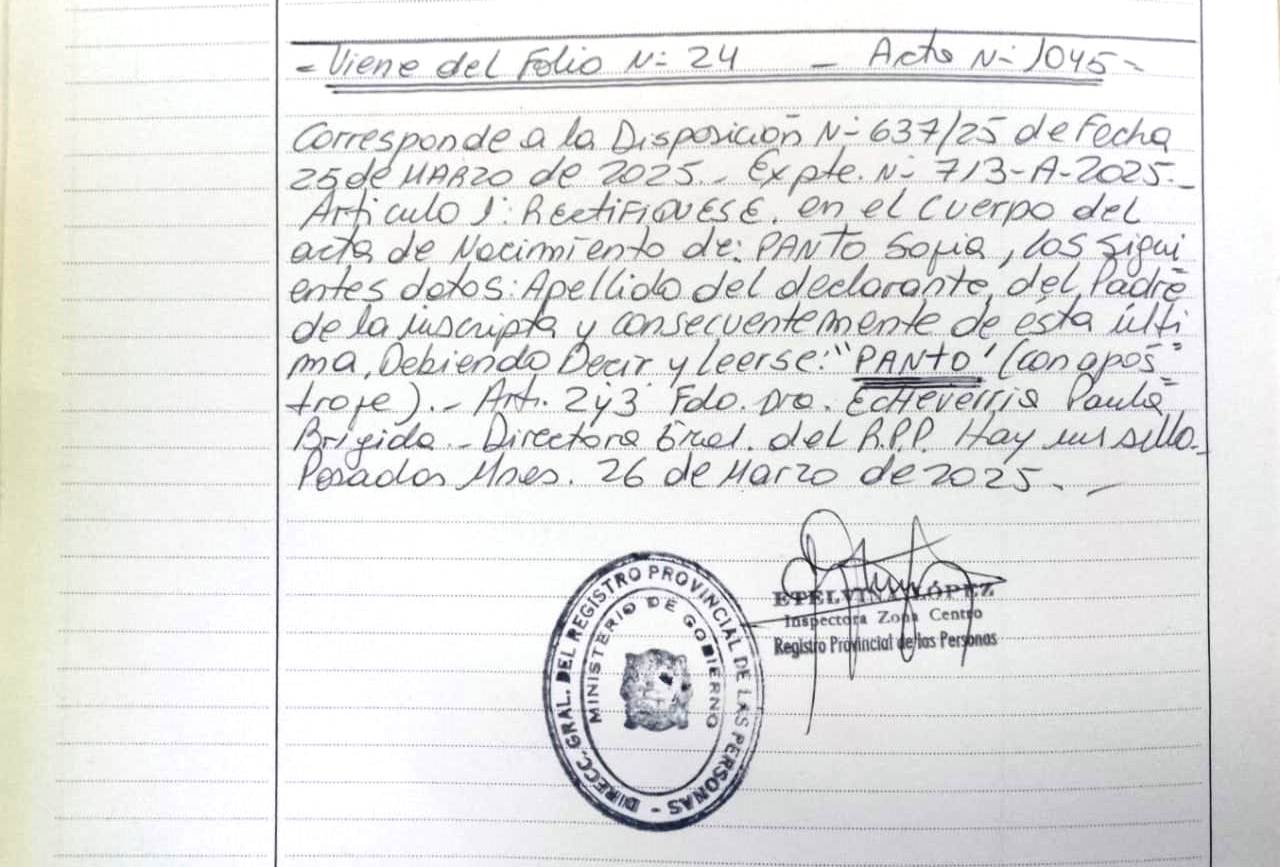 - Viene del Folio N- 24 - Acta N- 1045 -
Corresponde a la Disposición N- 637/25 de Fecha
25 de MARZO de 2025.- Expte. N- 713-A-2025.-
Articulo 1: RectiFIQUESE. en el Cuerpo del
acta de Nacimiento de: PANTO Sofia, los sigui
entes datos: Apellido del declarante, del Padre
de la inscripta y consecuentemente de esta ulti
ma, Debiendo Decir y leerse: "PANTO' (con apos
trofe).- Art. 2 y 3 Fdo. Dra. EcHeverria Paula
Brigida.- Directora Gral. del R.P.P. Hay un sello.
Posadas Mnes. 26 de Marzo de 2025.-
ETELVINA LÓPEZ
Inspectora Zona Centro
Registro Provincial de las Personas
DIRECC. GRAL. DEL REGISTRO PROVINCIAL DE LAS PERSONAS -
MINISTERIO DE GOBIERNO